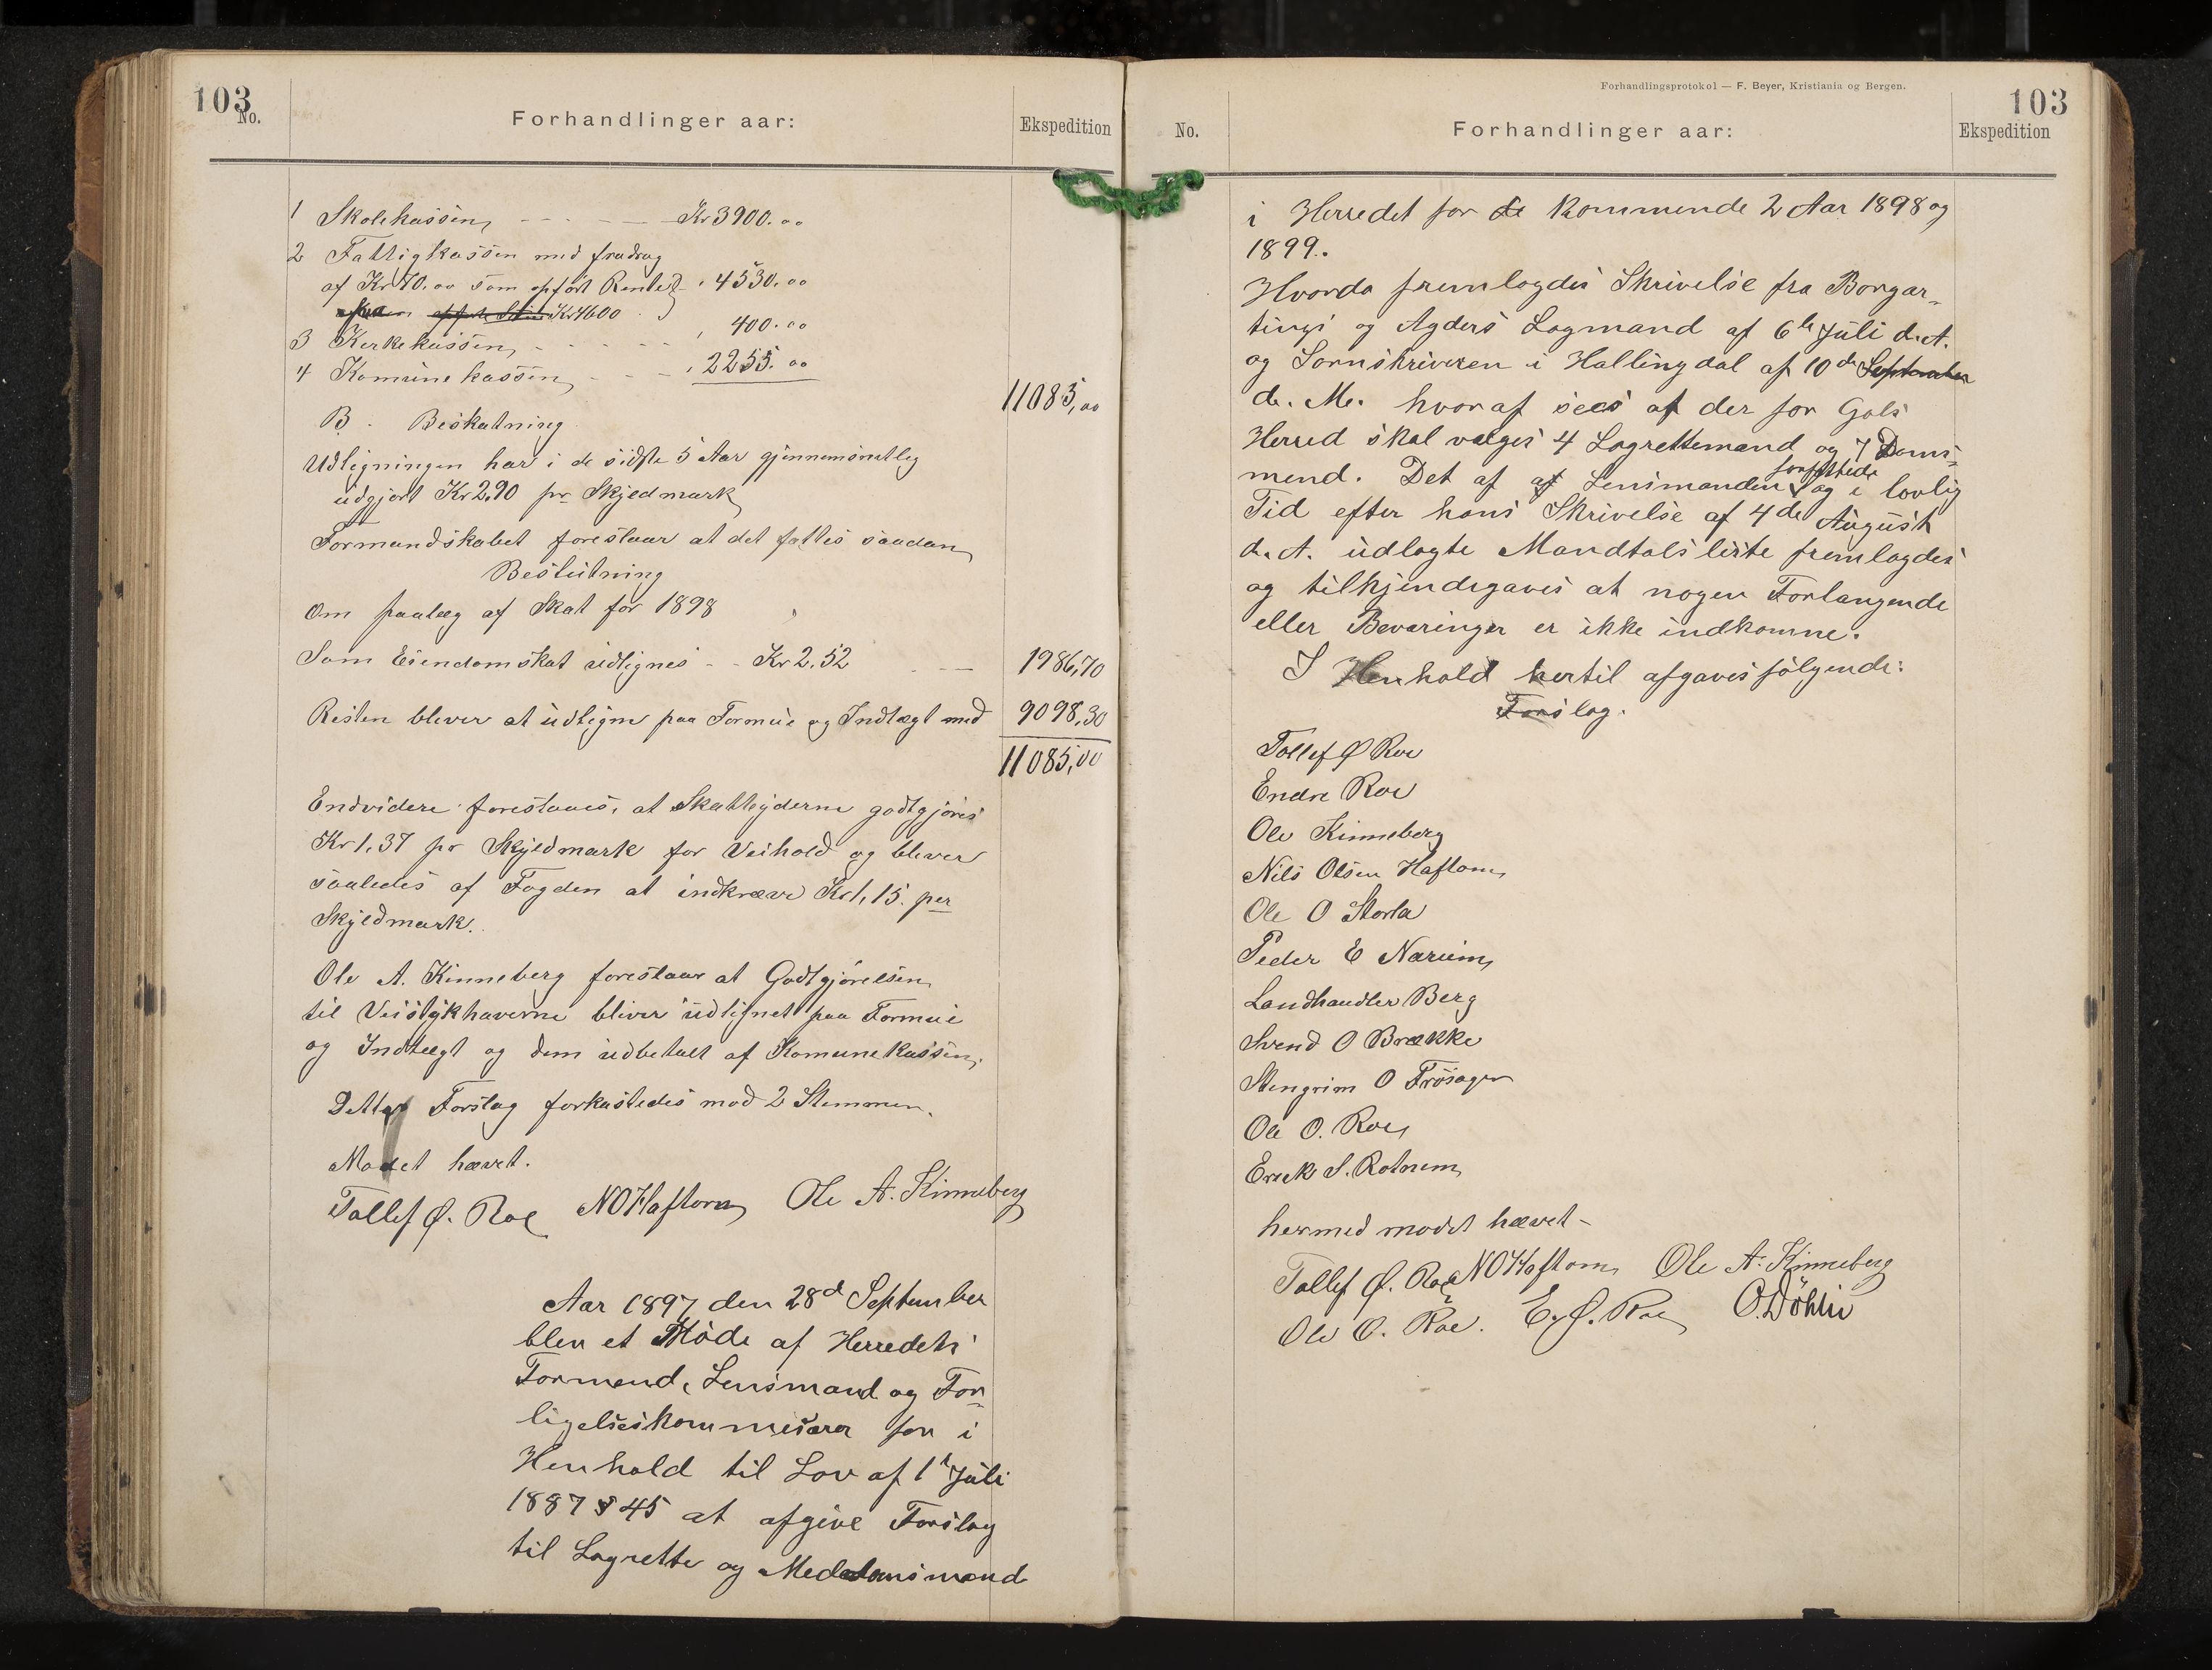 103
No.
Forhandlinger aar:
Ekspedition
1 Skolekassen, Kr 3900.00
2 Fattigkassen med fradrag
af Kr 70.00 som opført Renter " 4530.00
Kr 4600
3 Kirkekassen, " 400.00
4 Komunekassen " 2255.00
11085,00
B. Beskatning
Udligningen har i de sidste 5 Aar gjennemsnitlig
udgjort Kr 2,90 pr Skyldmark
Formandskabet foreslaar at det fattes saadan
Beslutning
Om paalæg af Skat for 1898
Som Eiendomskat udlignes - - Kr 2,52 — 1986,70
Resten bliver at udligne paa Formue og Indtægt med 9098,30
11085,00
Endvidere foreslaaes, at Skatteyderne godtgjøres
Kr 1,37 pr Skyldmark for Veihold og bliver
saaledes af Fogden at indkræve Kr 1,15. per
Skyldmark.
Ole A. Kinneberg foreslaar at Godtgjørelsen
til Veistykhaverne bliver udlignet paa Formue
og Indtægt og dem udbetalt af Komunekassen.
Dette Forslag forkastedes mod 2 Stemmer.
Mødet hævet.
Tollef Ø. Roe NOHaftorn Ole A. Kinneberg
Aar 1897 den 28d September
blev et Møde af Herredets
Formend, Lensmand og For-
ligelseskommisærer for i
Henhold til Lov af 1ste Juli
1887 § 45 at afgive Forslag
til Lagrette og Meddomsmænd
Forhandlingsprotokol — F. Beyer, Kristiania og Bergen.
103
No.
Forhandlinger aar:
Ekspedition
i Herredet for de kommende 2 Aar 1898 og
1899.
Hvorda fremlagdes Skrivelse fra Borgar-
tings og Agders Lagmand af 6te Juli d.A.
og Sornskriveren i Hallingdal af 10de September
d. M. hvoraf sees at der for Gols
Herred skal vælges 4 Lagrettemænd og 7 Doms-
mend. Det af af Lensmanden forfattede og i lovlig
Tid efter hans Skrivelse af 4de August
d. A. udlagte Mandtalsliste fremlagdes
og tilkjendegaves at nogen Forlangende
eller Bevaringer er ikke indkomne.
I Henhold hertil afgaves følgende:
Forslag.
Tollef Ø Roe
Endre Roe
Ole Kinneberg
Nils Olsen Haftorn
Ole O Storla
Peder E Narum
Landhandler Berg
Svend O Brække
Stengrim O Frøsager
Ole O. Roe
Erick S. Rotnem
hermed mødet hævet -
Tollef Ø. Roe NOHaftorn Ole A. Kinneberg
Ole O. Roe. E. Ø. Roe O. Döhlie